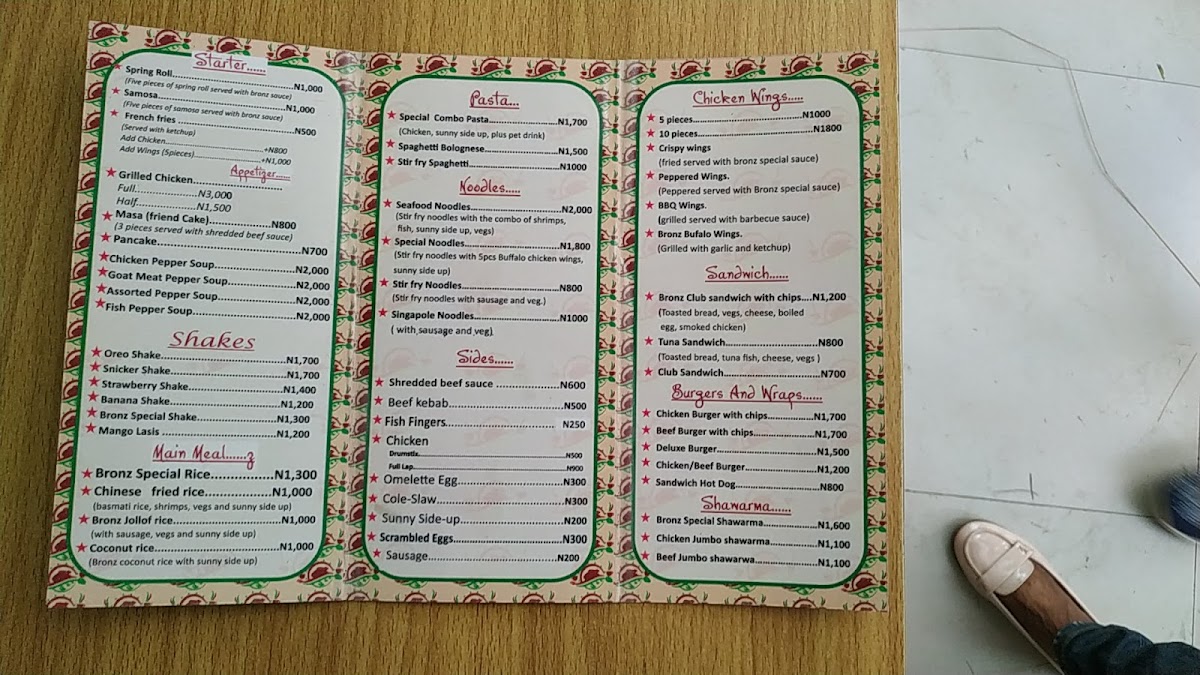 Starter......
Spring Roll..........................N1,000
(Five pieces of spring roll served with bronz sauce)
Samosa..........................N1,000
(Five pieces of samosa served with bronz sauce)
French fries ..........................N500
(Served with ketchup)
Add Chicken..........................+N800
Add Wings (5pieces)..........................+N1,000
Appetizer......
Grilled Chicken..........................
Full..............N3,000
Half..............N1,500
Masa (friend Cake)..............N800
(3 pieces served with shredded beef sauce)
Pancake..........................N700
Chicken Pepper Soup..............N2,000
Goat Meat Pepper Soup..............N2,000
Assorted Pepper Soup..............N2,000
Fish Pepper Soup..............N2,000
Shakes
Oreo Shake..........................N1,700
Snicker Shake..........................N1,700
Strawberry Shake..........................N1,400
Banana Shake..........................N1,200
Bronz Special Shake..............N1,300
Mango Lasis ..........................N1,200
Main Meal......z
Bronz Special Rice..............N1,300
Chinese fried rice..............N1,000
(basmati rice, shrimps, vegs and sunny side up)
Bronz Jollof rice..............N1,000
(with sausage, vegs and sunny side up)
Coconut rice..............N1,000
(Bronz coconut rice with sunny side up)
Pasta...
Special Combo Pasta..............N1,700
(Chicken, sunny side up, plus pet drink)
Spaghetti Bolognese..............N1,500
Stir fry Spaghetti..............N1000
Noodles.....
Seafood Noodles..............N2,000
(Stir fry noodles with the combo of shrimps,
fish, sunny side up, vegs)
Special Noodles..............N1,800
(Stir fry noodles with 5pcs Buffalo chicken wings,
sunny side up)
Stir fry Noodles..............N800
(Stir fry noodles with sausage and veg.)
Singapole Noodles..............N1000
( with sausage and veg)
Sides......
Shredded beef sauce ..............N600
Beef kebab..............N500
Fish Fingers.............. N250
Chicken
Drumstix..............N500
Full Lap..............N900
Omelette Egg..............N300
Cole-Slaw..............N300
Sunny Side-up..............N200
Scrambled Eggs..............N300
Sausage..............N200
Chicken Wings.....
5 pieces..............N1000
10 pieces..............N1800
Crispy wings
(fried served with bronz special sauce)
Peppered Wings.
(Peppered served with Bronz special sauce)
BBQ Wings.
(grilled served with barbecue sauce)
Bronz Bufalo Wings.
(Grilled with garlic and ketchup)
Sandwich......
Bronz Club sandwich with chips....N1,200
(Toasted bread, vegs, cheese, boiled
egg, smoked chicken)
Tuna Sandwich..............N800
(Toasted bread, tuna fish, cheese, vegs )
Club Sandwich..............N700
Burgers And Wraps......
Chicken Burger with chips..............N1,700
Beef Burger with chips..............N1,700
Deluxe Burger..............N1,500
Chicken/Beef Burger..............N1,200
Sandwich Hot Dog..............N800
Shawarma......
Bronz Special Shawarma..............N1,600
Chicken Jumbo shawarma..............N1,100
Beef Jumbo shawarwa..............N1,100